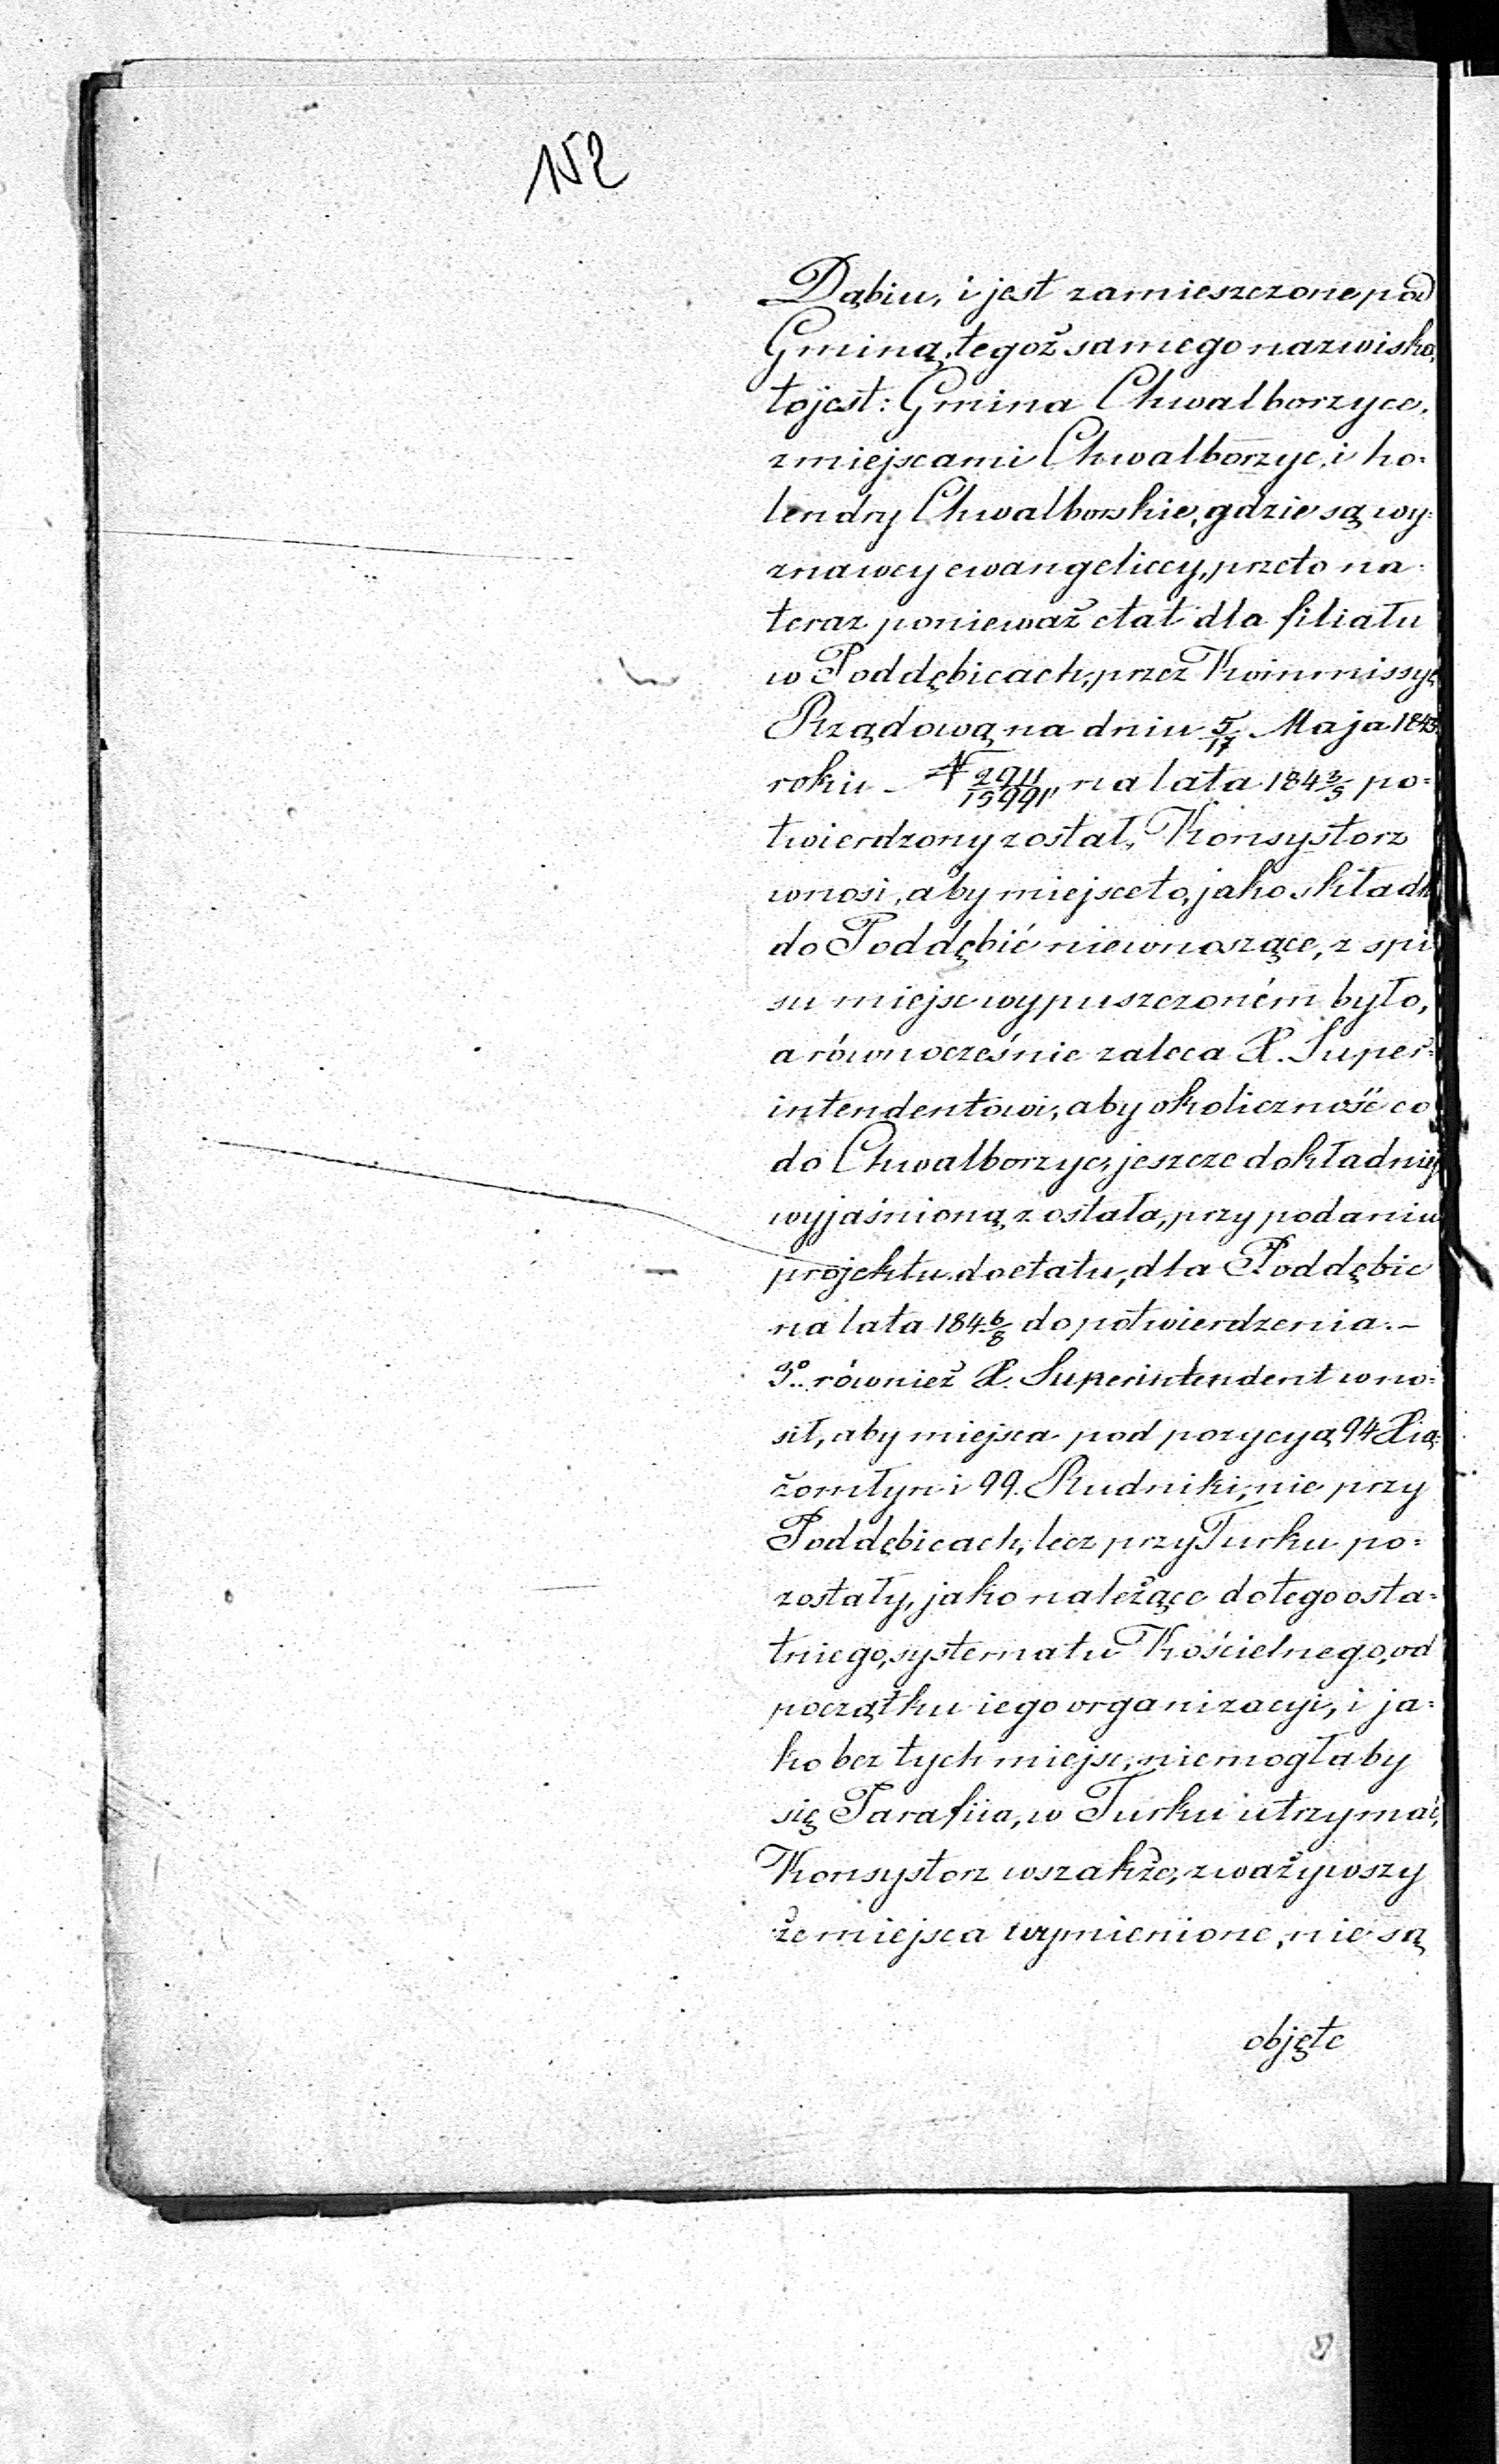 152
Dąbiu, i jest zamieszczone pod
Gminą, tegoż samego nazwiska,
to jest: Gmina Chwalborzyce,
z miejscami Chwalborzyc, i ho=
lendry Chwalborskie, gdzie są wy=
znawcy ewangeliccy, przeto na=
teraz ponieważ etat dla filiału
w Poddębicach, przez Kommissyę
Rządową na dniu 5/17 Maja 1843
roku № 2911/15991, na lata 184 3/5 po=
twierdzony został, Konsystorz
wnosi, aby miejsce to, jako składk
do Poddębić niewnoszące, z spi
su miejsc wypuszczoném było,
a równocześnie zaleca X. Super=
intendentowi, aby okoliczność co
do Chwalborzyc, jeszcze dokładniej
wyjaśnioną została, przy podaniu
projektu do etatu, dla Poddębic
na lata 184 6/8 do potwierdzenia.–
3o. również X. Superintendent wno=
sił, aby miejsca pod pozycyą 94 Xią=
żomłyn i 99. Rudniki, nie przy
Poddębicach, lecz przy Turku po=
zostały, jako należące do tego osta=
tniego, systematu Kościelnego, od
początku iego organizacyi, i ja=
ko bez tych miejsc, niemogłaby
się Parafiia, w Turku utrzymać,
Konsystorz wszakże, zważywszy
że miejsca wymienione, nie są
objęte